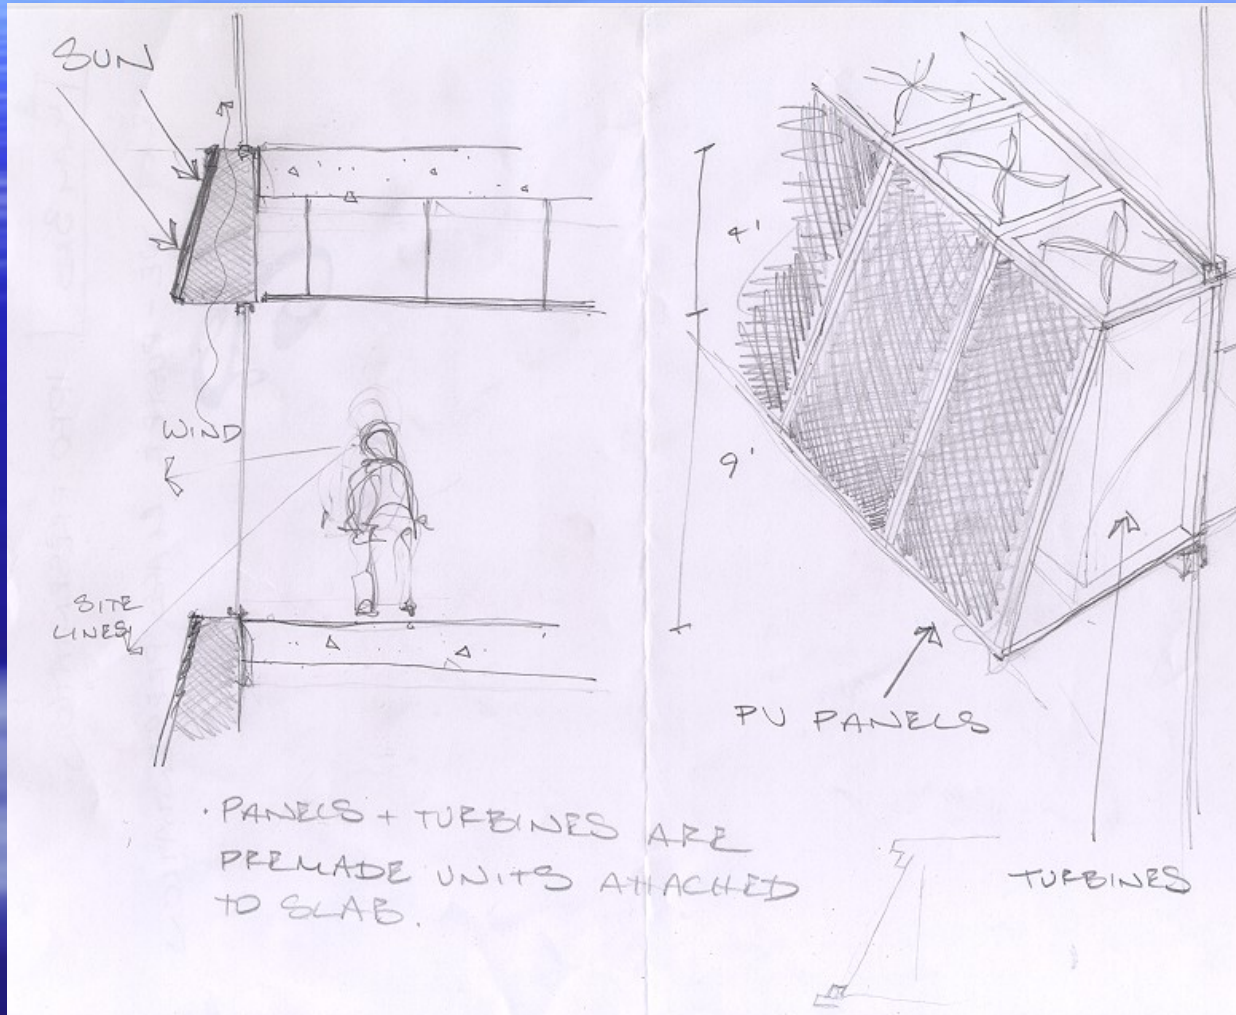 SUN
WIND
SITE
LINES
4'
9'
PV PANELS
TURBINES
· PANELS + TURBINES ARE
PREMADE UNITS ATTACHED
TO SLAB.